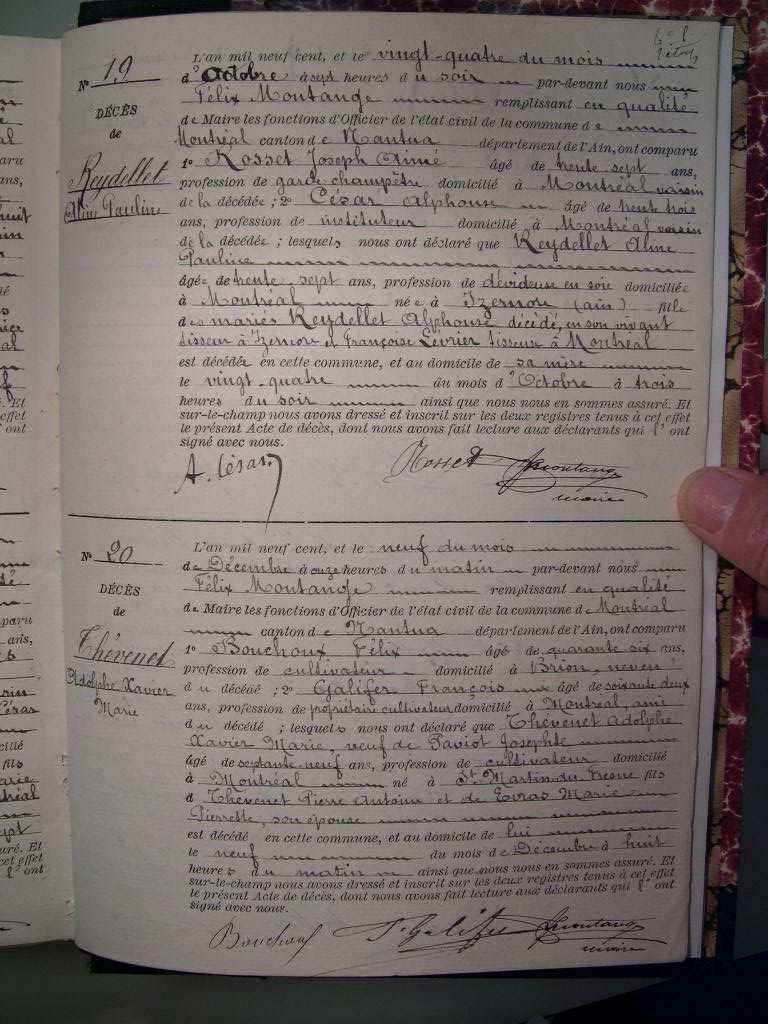 Nº 19
DÉCÈS
de
Reydellet
Aline Pauline
L'an mil neuf cent, et le vingt-quatre du mois
d'Octobre à sept heures du soir par-devant nous
Félix Montange remplissant en qualité
de Maire les fonctions d'Officier de l'état civil de la commune de
Montréal canton de Nantua département de l'Ain, ont comparu
1º Rosset Joseph Aimé âgé de trente sept ans,
profession de garde champêtre domicilié à Montréal voisin
de la décédée ; 2º César Alphonse âgé de trente trois
ans, profession de instituteur domicilié à Montréal voisin
de la décédée ; lesquels nous ont déclaré que Reydellet Aline
Pauline
âgée de trente sept ans, profession de dévideuse en soie domiciliée
à Montréal née à Izernore (ain) fille
des mariés Reydellet Alphonse décédé, en son vivant
tisseur à Izernore et Françoise Levrier tisseuse à Montréal
est décédée en cette commune, et au domicile de sa mère
le vingt-quatre du mois d'Octobre à trois
heures du soir ainsi que nous nous en sommes assuré. Et
sur-le-champ nous avons dressé et inscrit sur les deux registres tenus à cet effet
le présent Acte de décès, dont nous avons fait lecture aux déclarants qui l'ont
signé avec nous.
A. César Rosset Fmontange
maire
Nº 20
DÉCÈS
de
Thévenet
Adolphe Xavier
Marie
L'an mil neuf cent, et le neuf du mois
de Décembre à onze heures du matin par-devant nous
Félix Montange remplissant en qualité
de Maire les fonctions d'Officier de l'état civil de la commune de Montréal
canton de Nantua département de l'Ain, ont comparu
1º Bouchoux Félix âgé de quarante six ans,
profession de cultivateur domicilié à Brion, neveu
du décédé ; 2º Galifer François âgé de soixante deux
ans, profession de propriétaire cultivateur domicilié à Montréal, ami
du décédé ; lesquels nous ont déclaré que Thévenet Adolphe
Xavier Marie, veuf de Paviot Josephte
âgé de septante-neuf ans, profession de cultivateur domicilié
à Montréal né à St Martin du Fresne fils
d Thévenet Pierre Antoine et de Evras Marie
Pierrette, son épouse
est décédé en cette commune, et au domicile de lui
le neuf du mois de Décembre à huit
heures du matin ainsi que nous nous en sommes assuré. Et
sur-le-champ nous avons dressé et inscrit sur les deux registres tenus à cet effet
le présent Acte de décès, dont nous avons fait lecture aux déclarants qui l'ont
signé avec nous.
Bouchoux F. Galifer Fmontange
maire